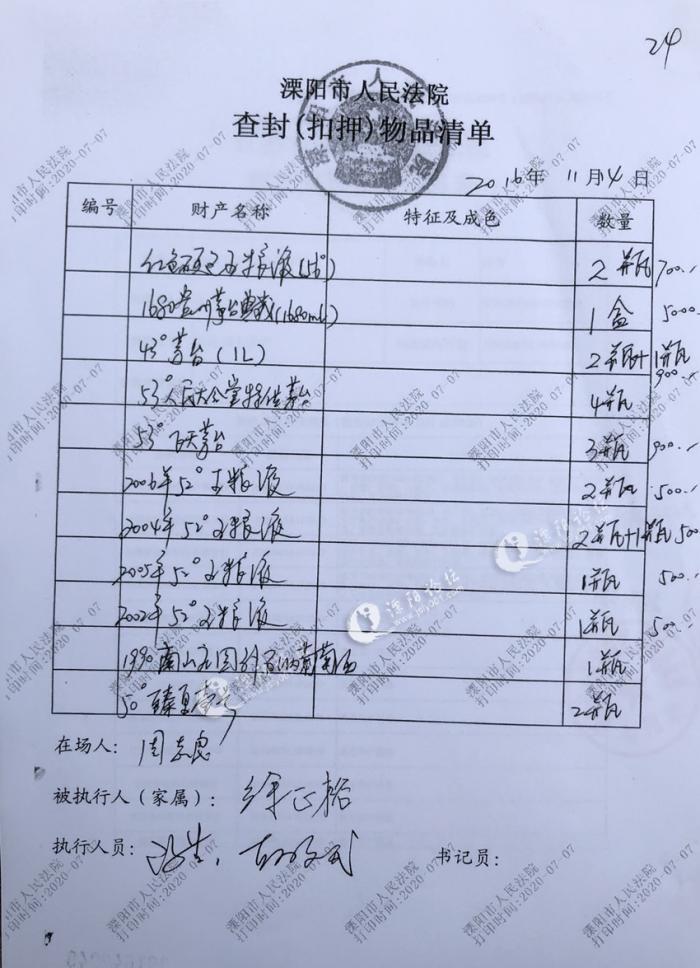 24
溧阳市人民法院
查封(扣押)物品清单
2016年 11月4日
编号 财产名称 特征及成色 数量
五粮液(52°) 2瓶 700.
1680贵州茅台典藏(1680ml) 1盒 5000.
43°茅台(1L) 2瓶+1瓶
900.
53°人民大会堂特供茅台 4瓶
53°飞天茅台 3瓶 900.
2006年52°五粮液 2瓶 500.
2004年52°五粮液 2瓶+1瓶 500
2005年52°五粮液 1瓶 500.
2002年52°五粮液 1瓶 500
1990南山庄园 葡萄酒 1瓶
50° 2瓶
在场人: 周志忠
被执行人(家属): 徐正裕
执行人员:
书记员:
溧阳市人民法院
打印时间:2020-07-07
溧阳论坛